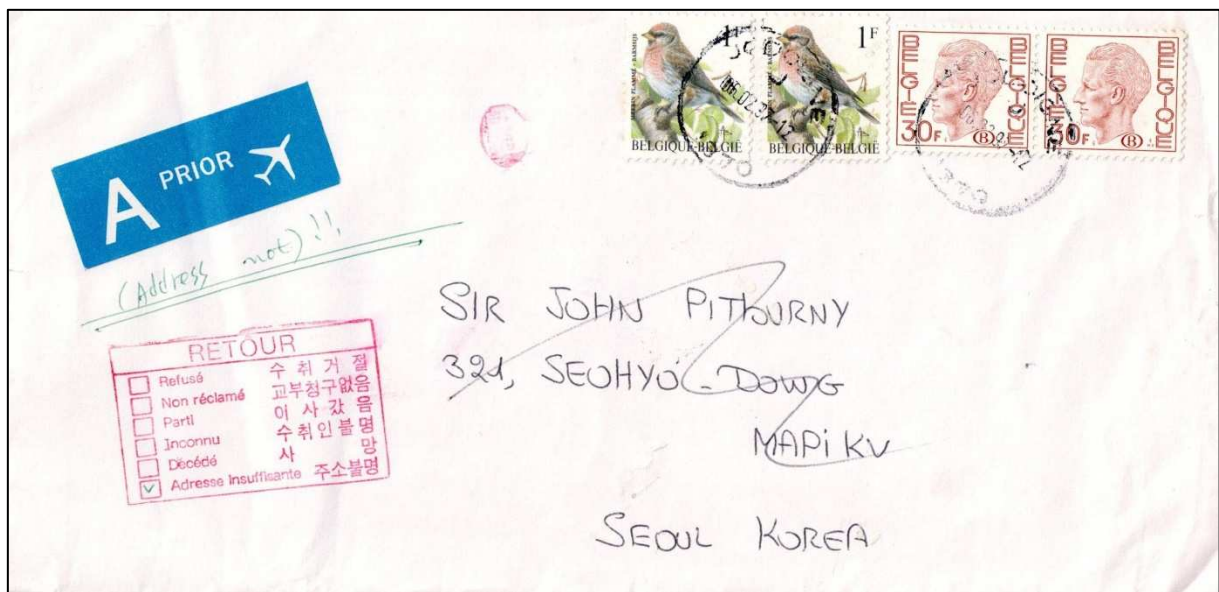 1F
1F
BELGIQUE-BELGIË
BELGIQUE-BELGIË
BELGIE
BELGIQUE
30F
B
BELGIE
BELGIQUE
30F
B
A PRIOR
(Address not)!!
RETOUR
Refusé 수취거절
Non réclamé 교부청구없음
Parti 이사갔음
Inconnu 수취인불명
Décédé 사망
Adresse Insuffisante 주소불명
SIR JOHN PITBURNY
321, SEOHYO-DOWG
MAPI KV
SEOUL KOREA